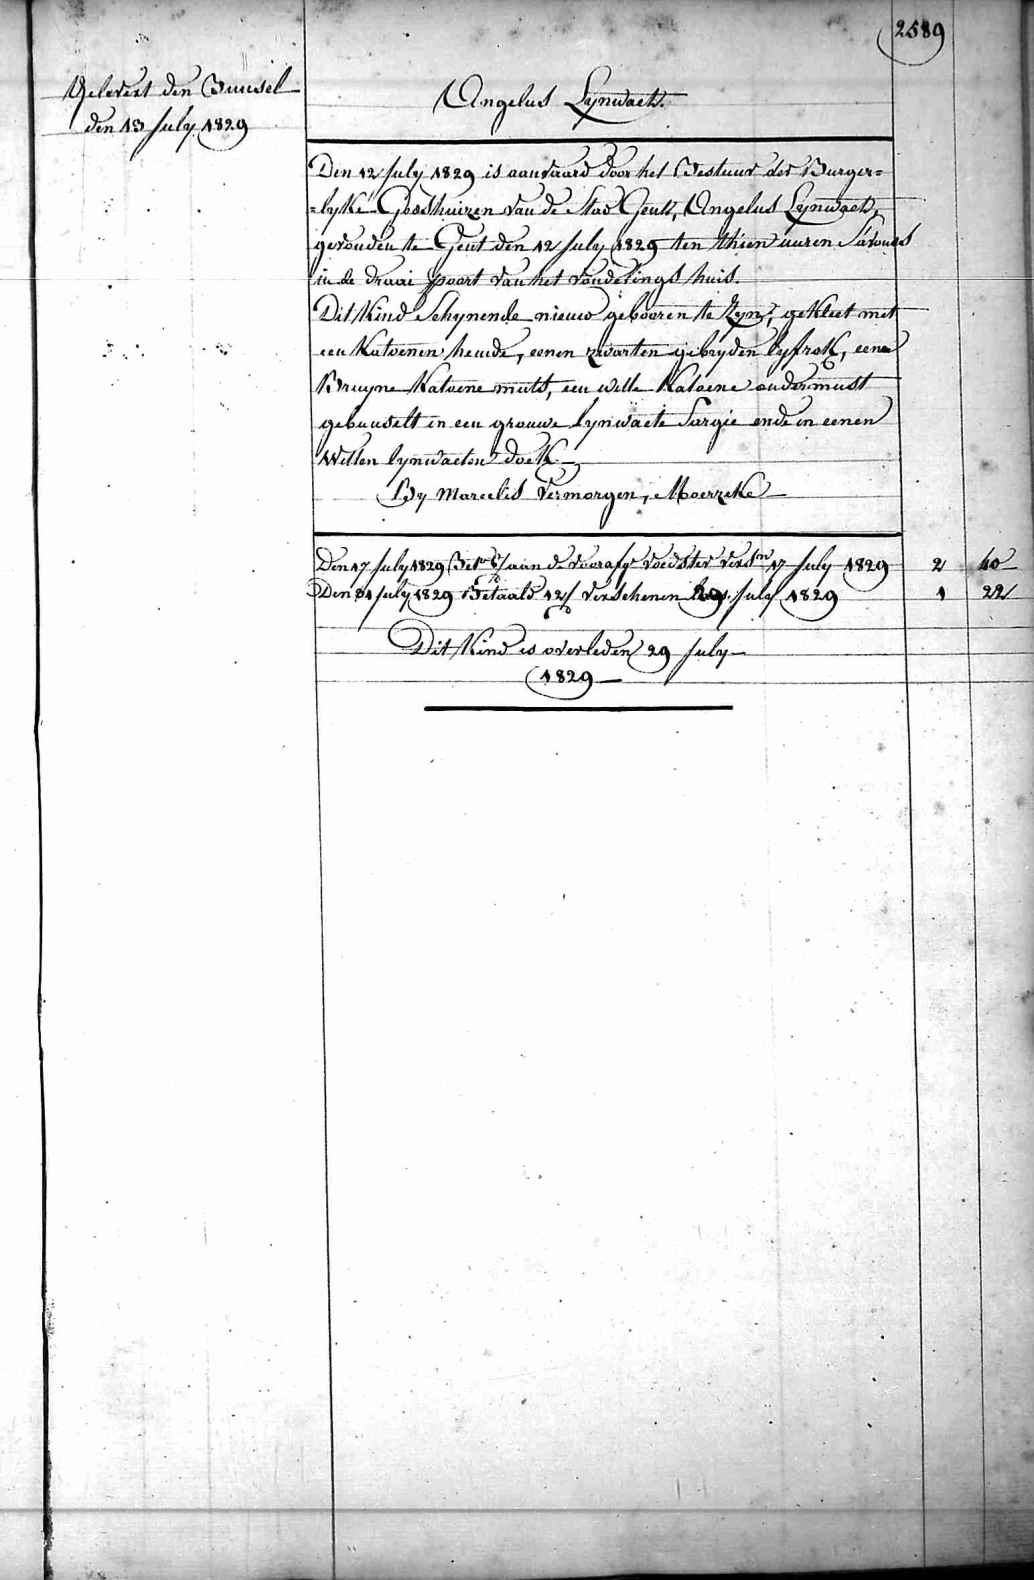 2589
Gelevert den Bunsel
den 13 July 1829
Angelus Lynwaet.
Den 12 July 1829 is aanvaard door het Bestuur der Burger=
=lyke Godshuizen van de Stad Gent, Angelus Lynwaet,
gevonden te Gent den 12 July 1829 ten thien uuren s'avonds
in de draai poort van het vondelings huis.
Dit Kind Schynende nieuw gebooren te Zyn, gekleet met
een Katoenen hemde, eenen zwarten gebryden lyfrok, eene
Bruyne Katoene muts, een witte Katoene ondermust
gebunselt in een grouwe Lynwaete Sargie ende in eenen
Witten lynwaeten doek.
By Marcelis Vermorgen, Moerzeke
Den 17 July 1829 aan de voorafge voedster 17 July 1829 2 40
Den July 1829 Betaald 12/ Verschenen July 1829 1 22
Dit Kind is overleden 29 July
1829